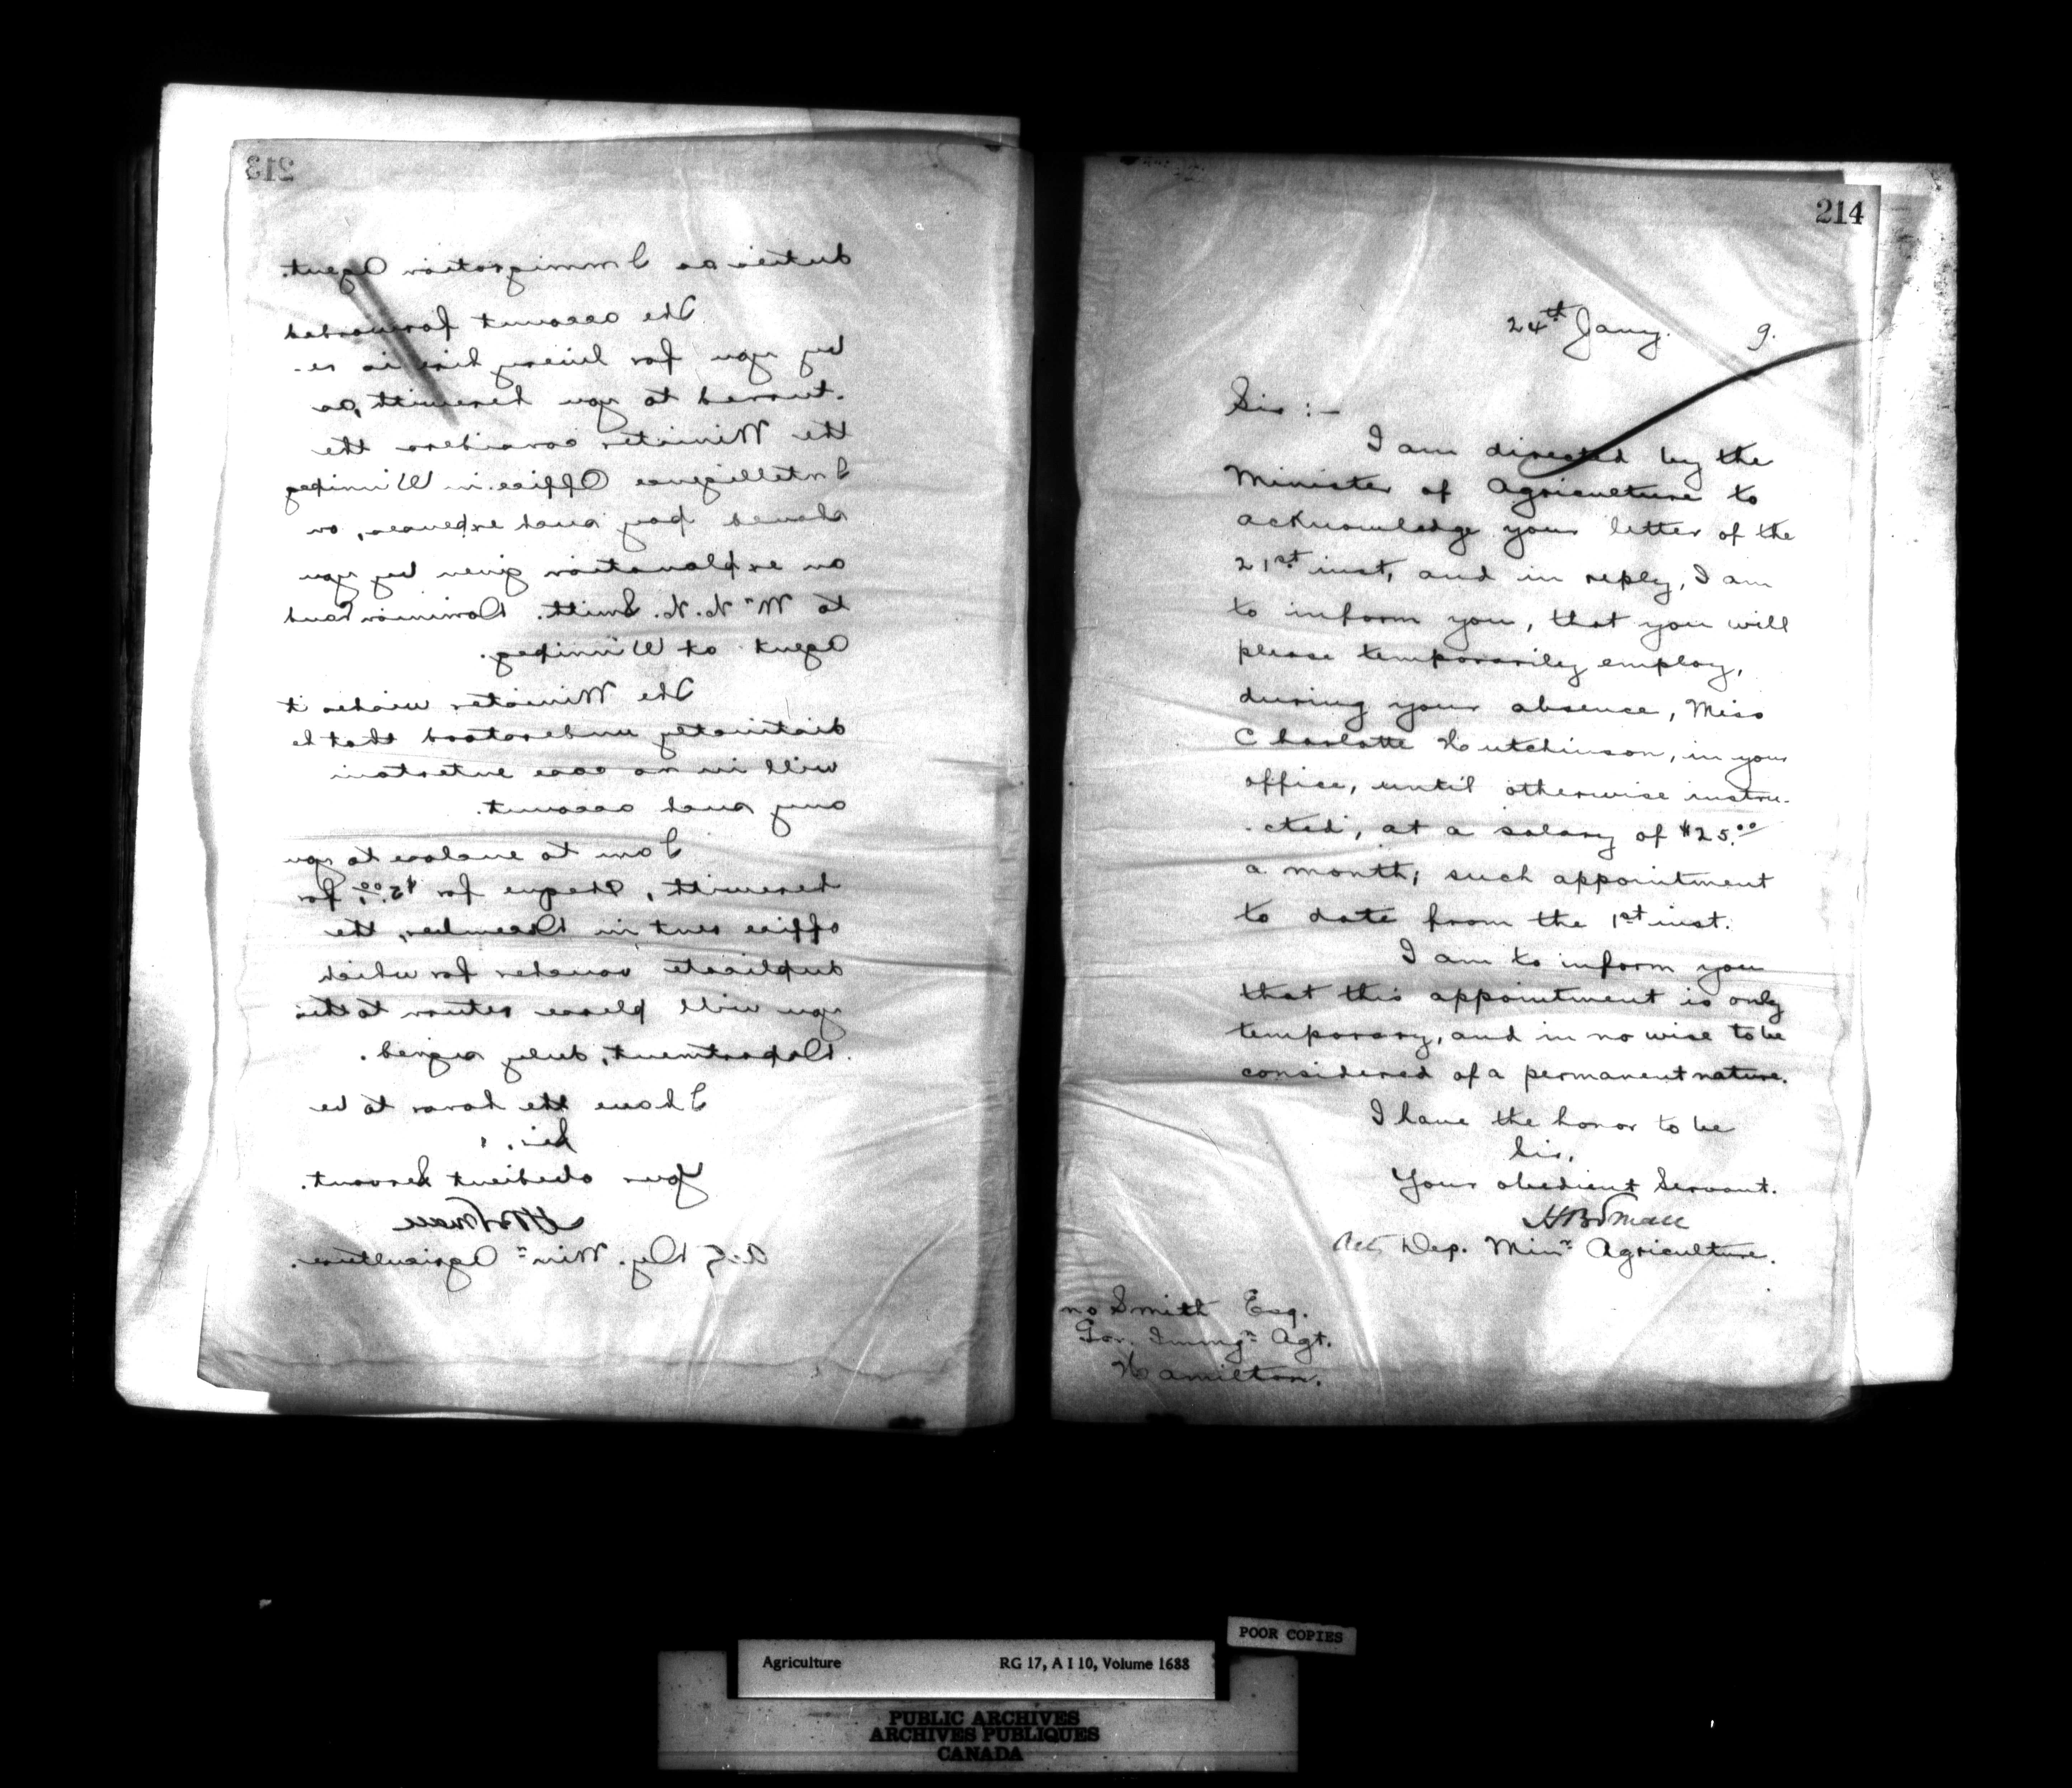 213
duties as Immigration Agent.
The account forwarded
by you for livery hire is re-
-turned to you herewith, as
the Minister considers the
Intelligence Office in Winnipeg
should pay such expenses, on
an explanation given by you
to Mr. H. H. Smith. Dominion Land
Agent at Winnipeg.
The Minister wishes it
distinctly understood that he
will in no case entertain
any such account.
I am to enclose to you
herewith, cheque for $5.00, for
office rent in December, the
duplicate voucher for which
you will please return to this
Department, duly signed.
I have the honor to be
Sir,
Your obedient Servant.
HBSmall
Actg Dy. Minr Agriculture.
214
24th Jany. 9.
Sir :-
I am directed by the
Minister of Agriculture to
acknowledge your letter of the
21st inst, and in reply, I am
to inform you, that you will
please temporarily employ,
during your absence, Miss
Charlotte Hutchinson, in your
office, until otherwise instru-
-cted, at a salary of $25.00
a month; such appointment
to date from the 1st inst.
I am to inform you
that this appointment is only
temporary, and in no wise to be
considered of a permanent nature.
I have the honor to be
Sir,
Your obedient Servant.
HBSmall
Act. Dep. Minr Agriculture.
no Smith Esq.
Gov. Immgn Agt.
Hamilton.
POOR COPIES
Agriculture RG 17, A I 10, Volume 1688
PUBLIC ARCHIVES
ARCHIVES PUBLIQUES
CANADA